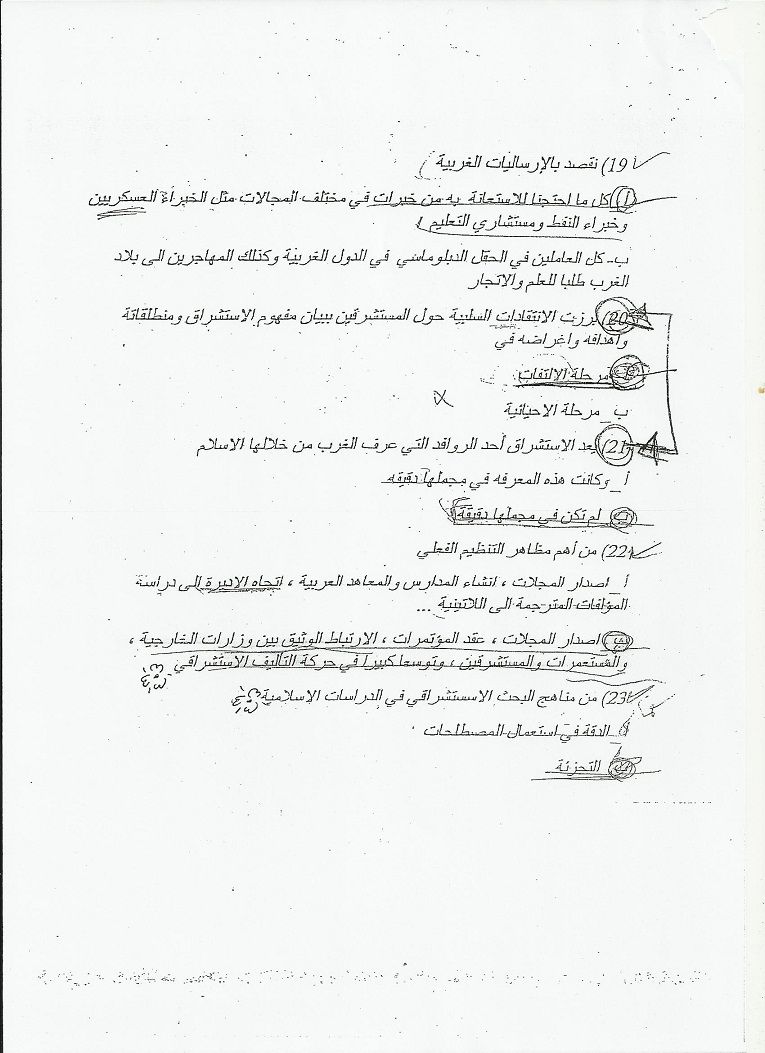 19) نقصد بالإرساليات الغربية
أ) كل ما احتجنا للاستعانة به من خبرات في مختلف المجالات مثل الخبراء العسكريين
وخبراء النفط ومستشاري التعليم
ب_ كل العاملين في الحقل الدبلوماسي في الدول الغربية وكذلك المهاجرين الى بلاد
الغرب طلبا للعلم والاتجار
20) برزت الانتقادات السلبية حول المستشرقين ببيان مفهوم الاستشراق ومنطلقاتة
واهدافه واغراضه في
مرحلة الالتفات
ب_ مرحلة الاحيائية
21) يعد الاستشراق أحد الروافد التي عرف الغرب من خلالها الاسلام
أ_ وكانت هذه المعرفه في مجملها دقيقه
ب لم تكن في مجملها دقيقة
22) من أهم مظاهر التنظيم الفعلي
أ_ اصدار المجلات ، انشاء المدارس والمعاهد العربية ، اتجاه الاديرة الى دراسة
المؤلفات المترجمة الى اللاتينية ...
ب اصدار المجلات ، عقد المؤتمرات ، الارتباط الوثيق بين وزارات الخارجية ،
والمستعمرات والمستشرقين ، وتوسعا كبيرا في حركة التأليف الاستشراقي
23) من مناهج البحث الاسستشراقي في الدراسات الإسلامية
أ_ الدقة في استعمال المصطلحات
ب_ التجزئة